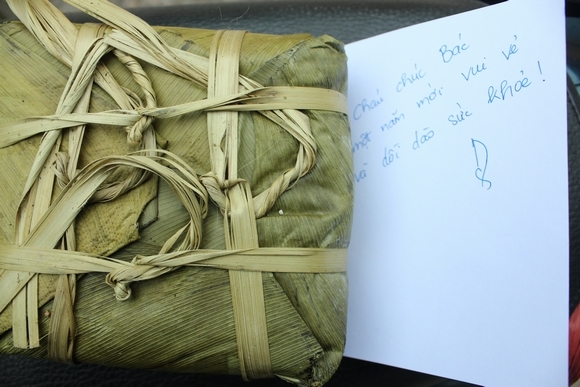 Cháu chúc Bác
một năm mới vui vẻ
và dồi dào sức khỏe!